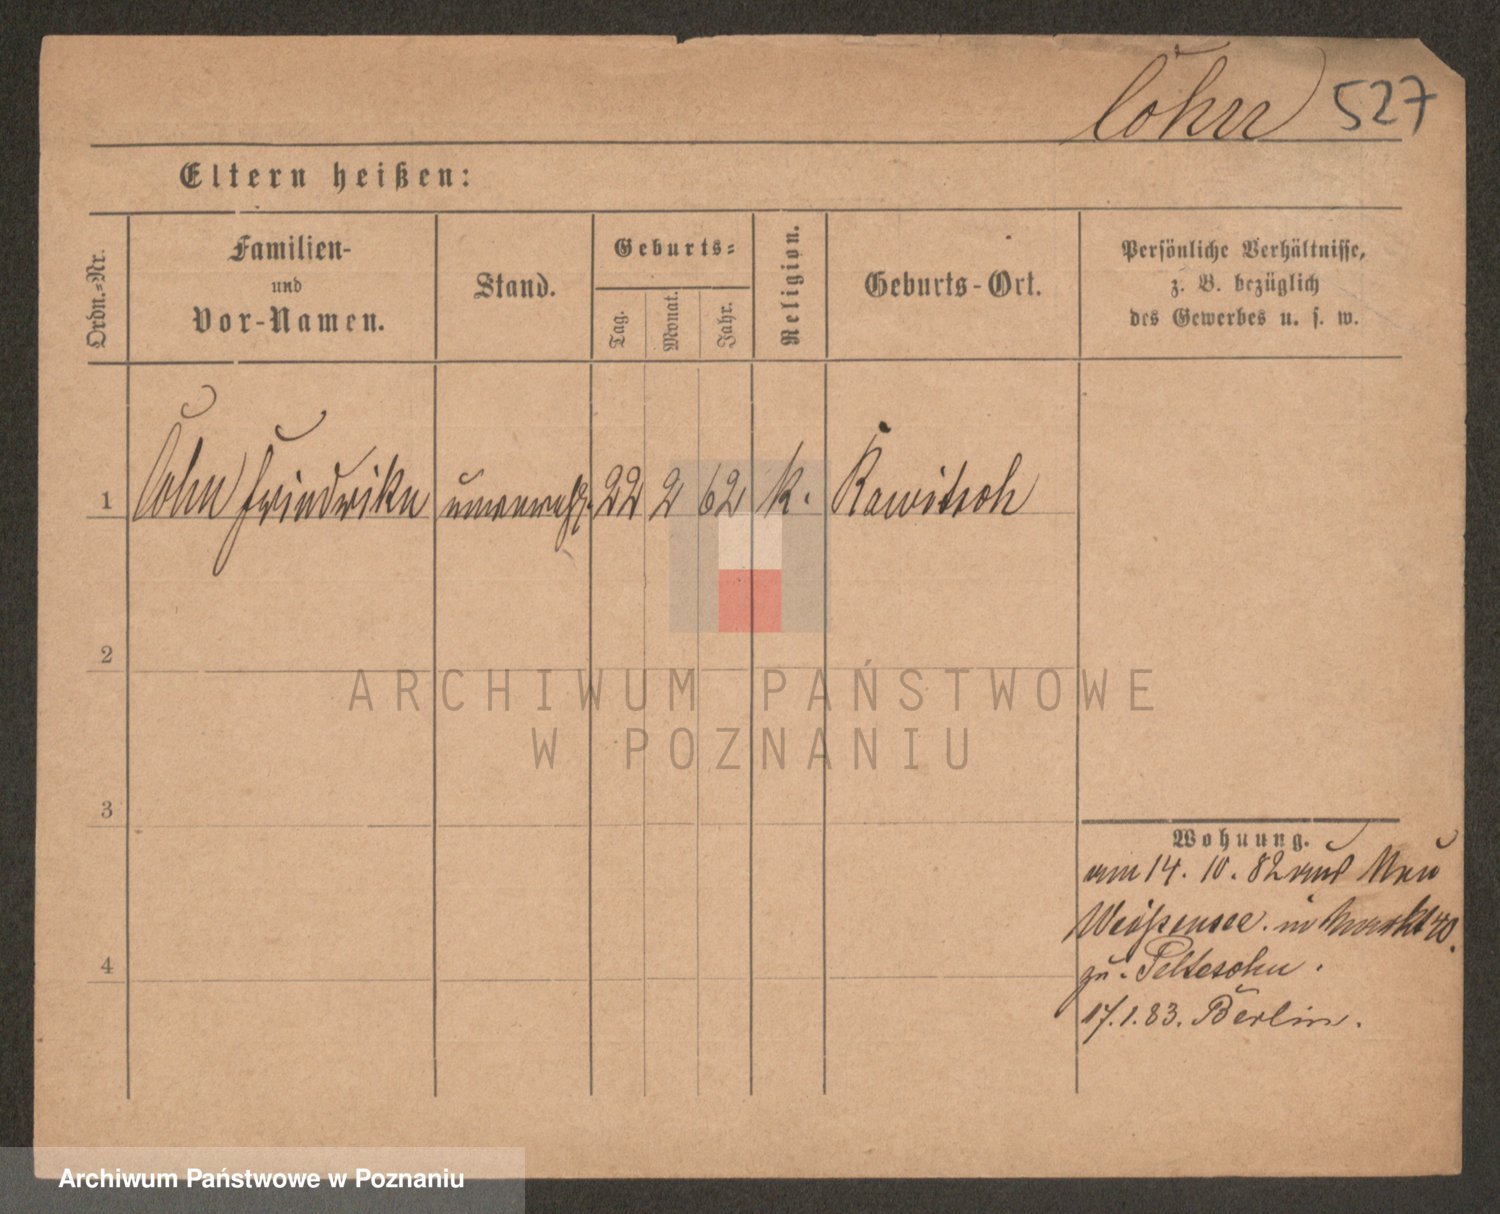 Cohn 527
Eltern heißen:
Ordn.-Nr.
Familien-
und
Vor-Namen.
Stand.
Geburts-
Tag.
Monat.
Jahr.
Religion.
Geburts-Ort.
Persönliche Verhältnisse,
z. B. bezüglich
des Gewerbes u. s. w.
1 Cohn Friedrike unverehl. 22 2 62 k. Rawitsch
2
3
4
Wohnung.
am 14. 10. 82 aus Neu
Weißensee. in Markt 40.
zu. Peltesohn.
17.1.83. Berlin.
ARCHIWUM PAŃSTWOWE
W POZNANIU
Archiwum Państwowe w Poznaniu